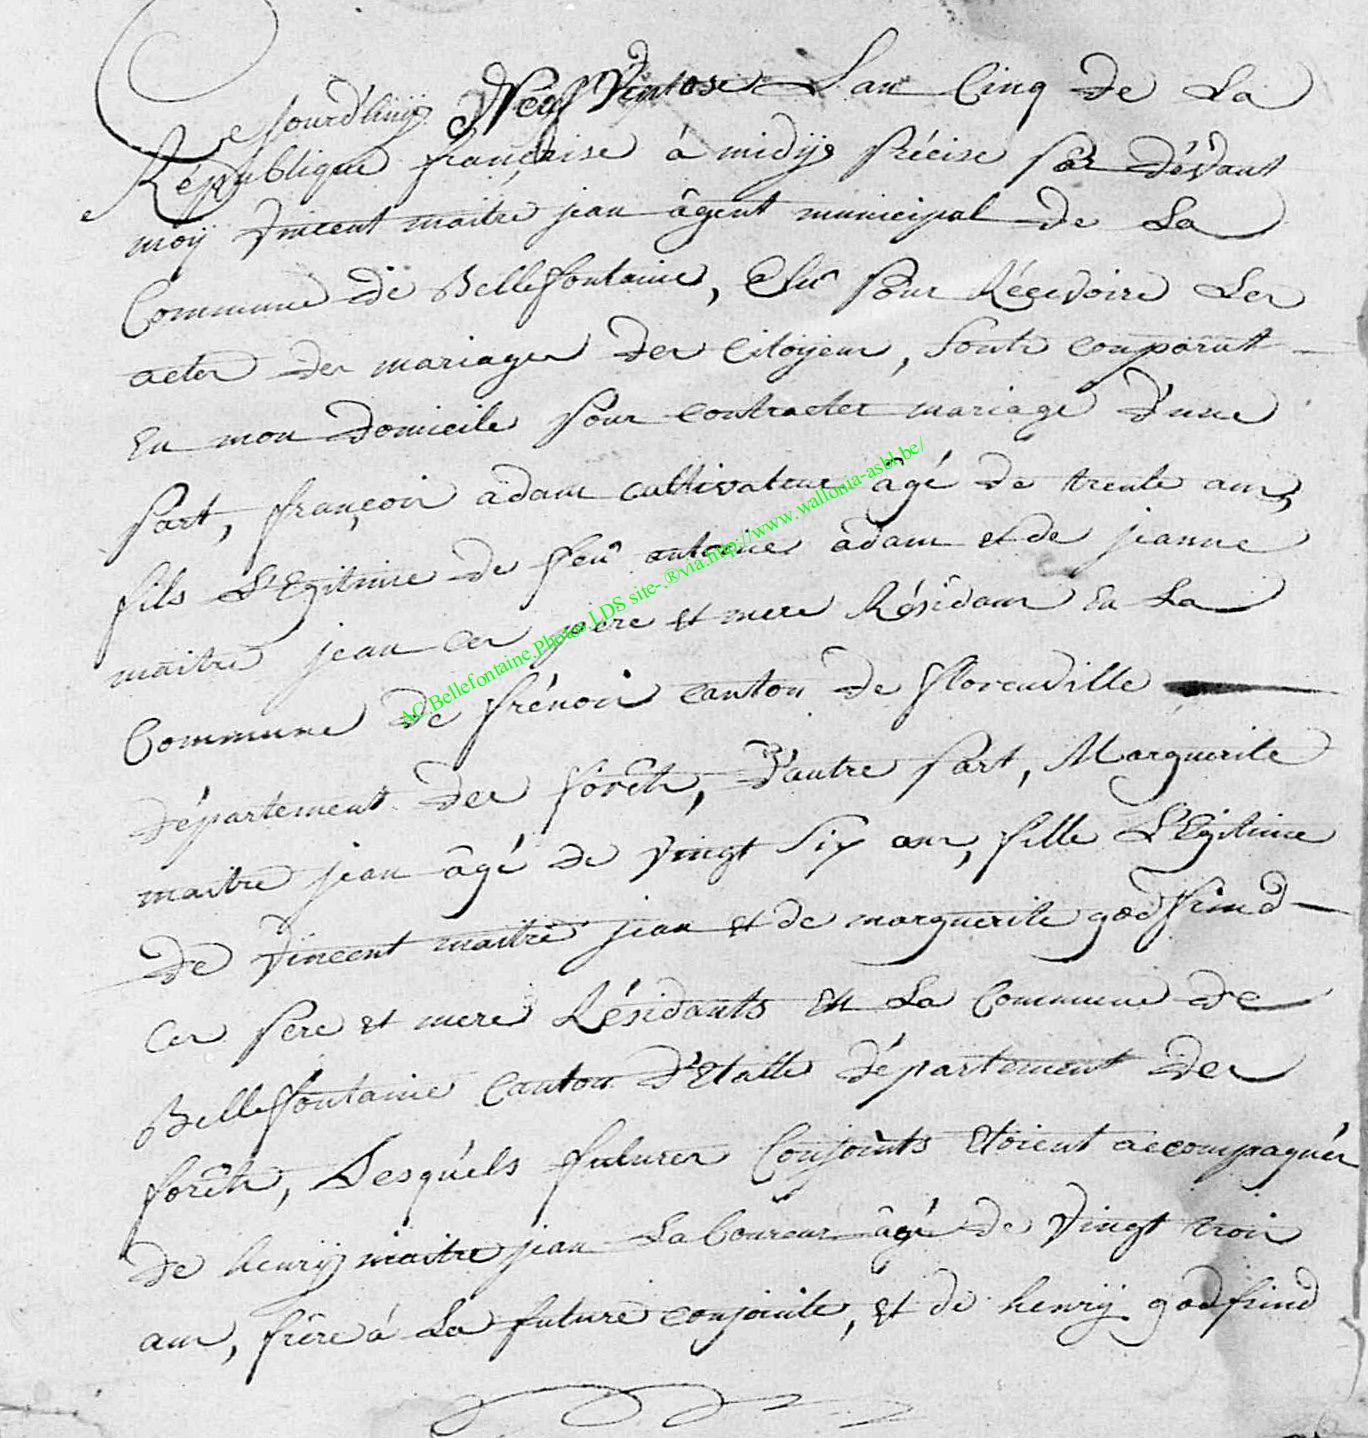 Cejourd'huij Neuf Ventose L'an Cinq de La
République française à midÿ précise par dévant
moÿ Vincent maitre jean âgent municipal de La
Commune de Bellefontaine, Elu pour Récevoire Les
actes des mariages des Citoÿens, sonts comparut
En mon domicile pour contracter mariage d'une
part, françois adam cultivateur âgé de trente ans,
fils L'Egitime de feu antoine adam et de jeanne
maitre jean ces pere et mere Résidans En La
Commune de frénois canton de florenville
département des forêts, D'autre part, Marguerite
maitre jean âgé de vingt six ans, fille L'Egitime
De Vincent maitre jean et de marguerite godfrind
ces pere et mere Résidants En La Commune de
Bellefontaine Canton d'Etalle département des
forêts, Lesquels futures Conjoints Etoient accompagnés
de henrÿ maitre jean Laboureur âgé de vingt trois
ans, frère à La future conjointe, et de henrÿ godfrind
AC.Bellefontaine.Photos LDS site-.®via.http://www.wallonia-asbl.be/